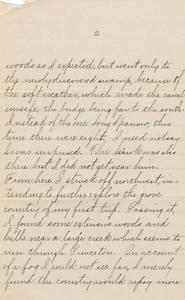 2
woods as I expected, but went only to
the newly discovered swamp, because of
the soft weather, which made the canal
unsafe, the bridge being far to the south.
Instead of the one Song Sparrow, this
time there were eight. I need not say
I was surprised. The Hawk was also
there but I did not get near him.
From here I struck off northwest, in-
tending to further explore the grove
country of my first trip. Passing it,
I found some extensive woods and
hills near a large creek which seems to
run through Princeton. On account
of a fog I could not see far, I merely
found the country would repay more